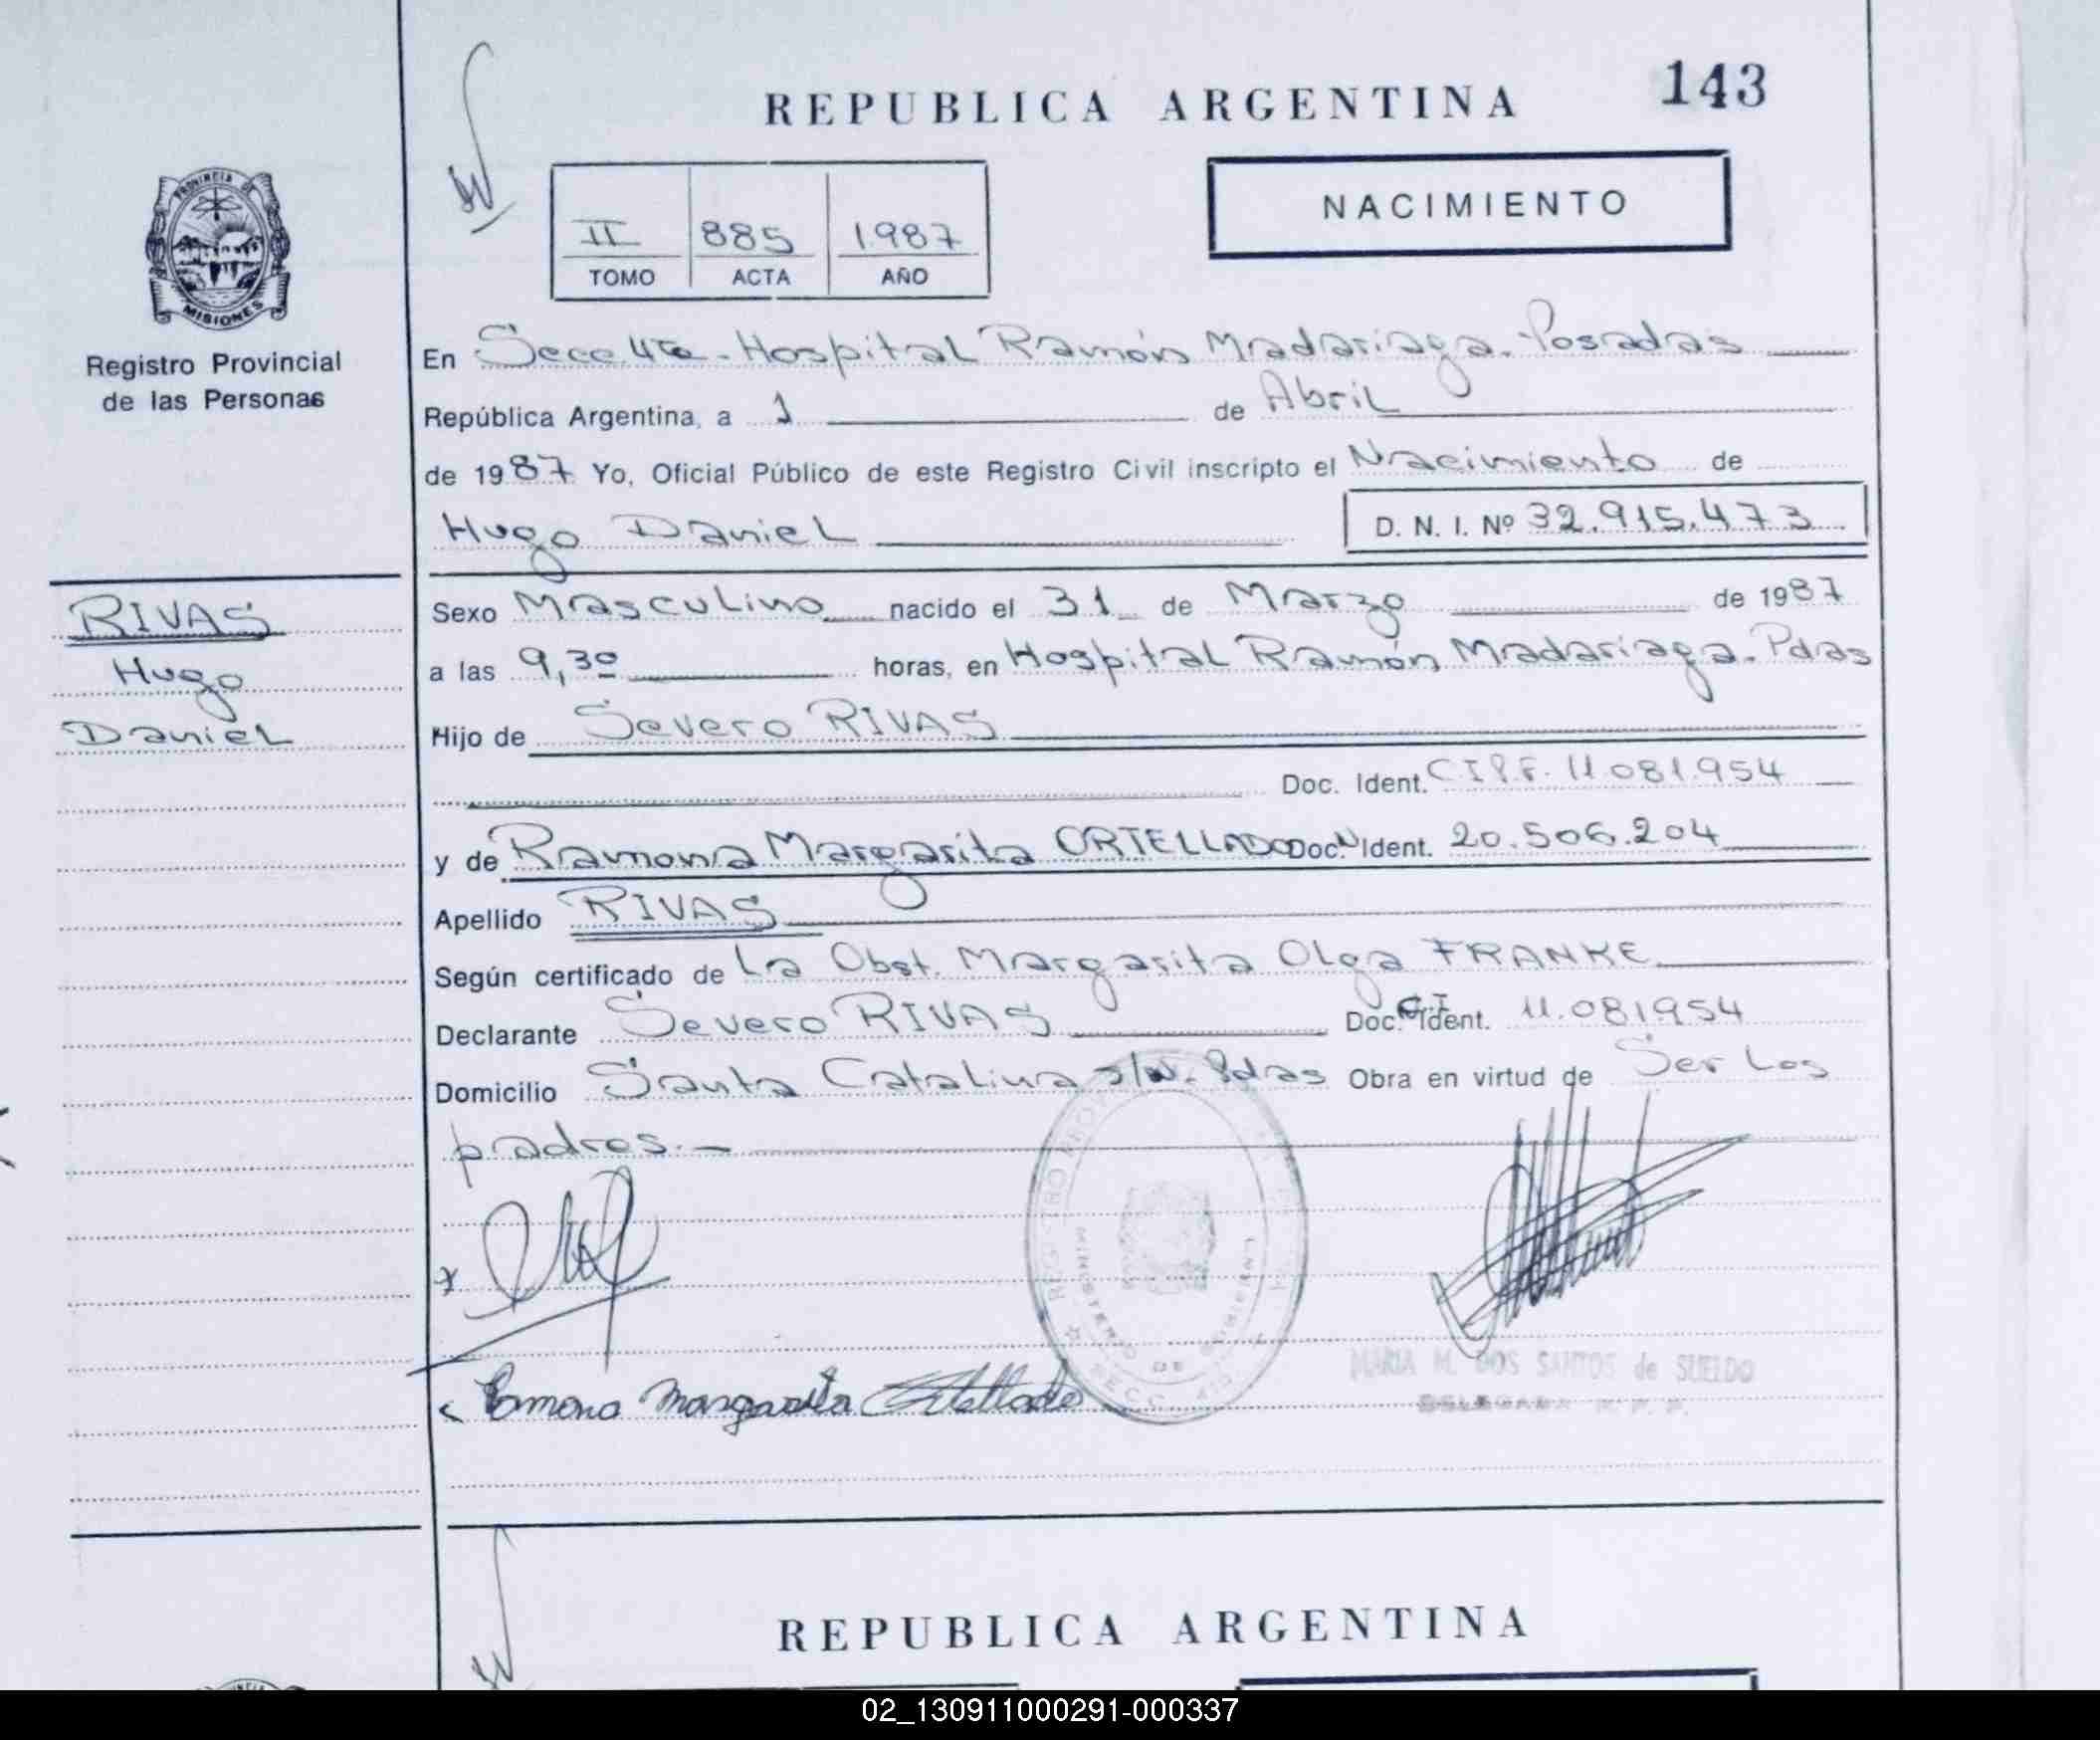 143
REPUBLICA ARGENTINA
NACIMIENTO
II 885 1987
TOMO ACTA AÑO
PROVINCIA DE
MISIONES
Registro Provincial
de las Personas
En Secc 4ta - Hospital Ramón Madariaga. Posadas
República Argentina, a 1 de Abril
de 1987 Yo, Oficial Público de este Registro Civil inscripto el Nacimiento de
Hugo Daniel D. N. I. Nº 32.915.473
RIVAS
Hugo
Daniel
Sexo Masculino nacido el 31 de Marzo de 1987
a las 9,30 horas, en Hospital Ramón Madariaga. Pdas
Hijo de Severo RIVAS
Doc. Ident. C I P.F. 11.081.954
y de Ramona Margarita ORTELLADO Doc. Ident. 20.506.204
Apellido RIVAS
Según certificado de La Obst. Margarita Olga FRANKE
Declarante Severo RIVAS Doc. Ident. CI 11.081954
Domicilio Santa Catalina s/n. Pdas Obra en virtud de Ser los
padres. -
Ramona Margarita Ortellado
MARIA M. DOS SANTOS de SUELDO
DELEGADA R. P. P.
REPUBLICA ARGENTINA
02_130911000291-000337